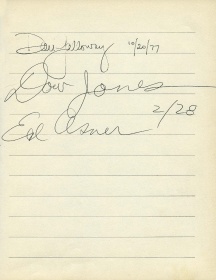 Dave Holloway 10/20/77
Dow Jones
2/28
Ed Asner